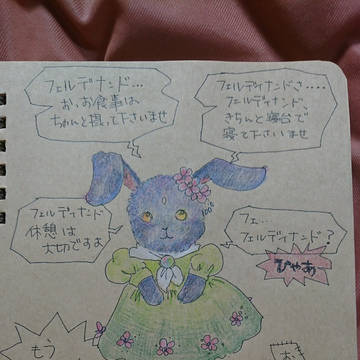 フェルディナンド…
お、お食事は、
ちゃんと摂って下さいませ
フェルディナンドさ‥‥
フェルディナンド、
きちんと寝台で
寝て下さいませ
フェルディナンド
休憩は
大切ですよ
フェ…
フェルディナンド?
ぴゃあ
もう